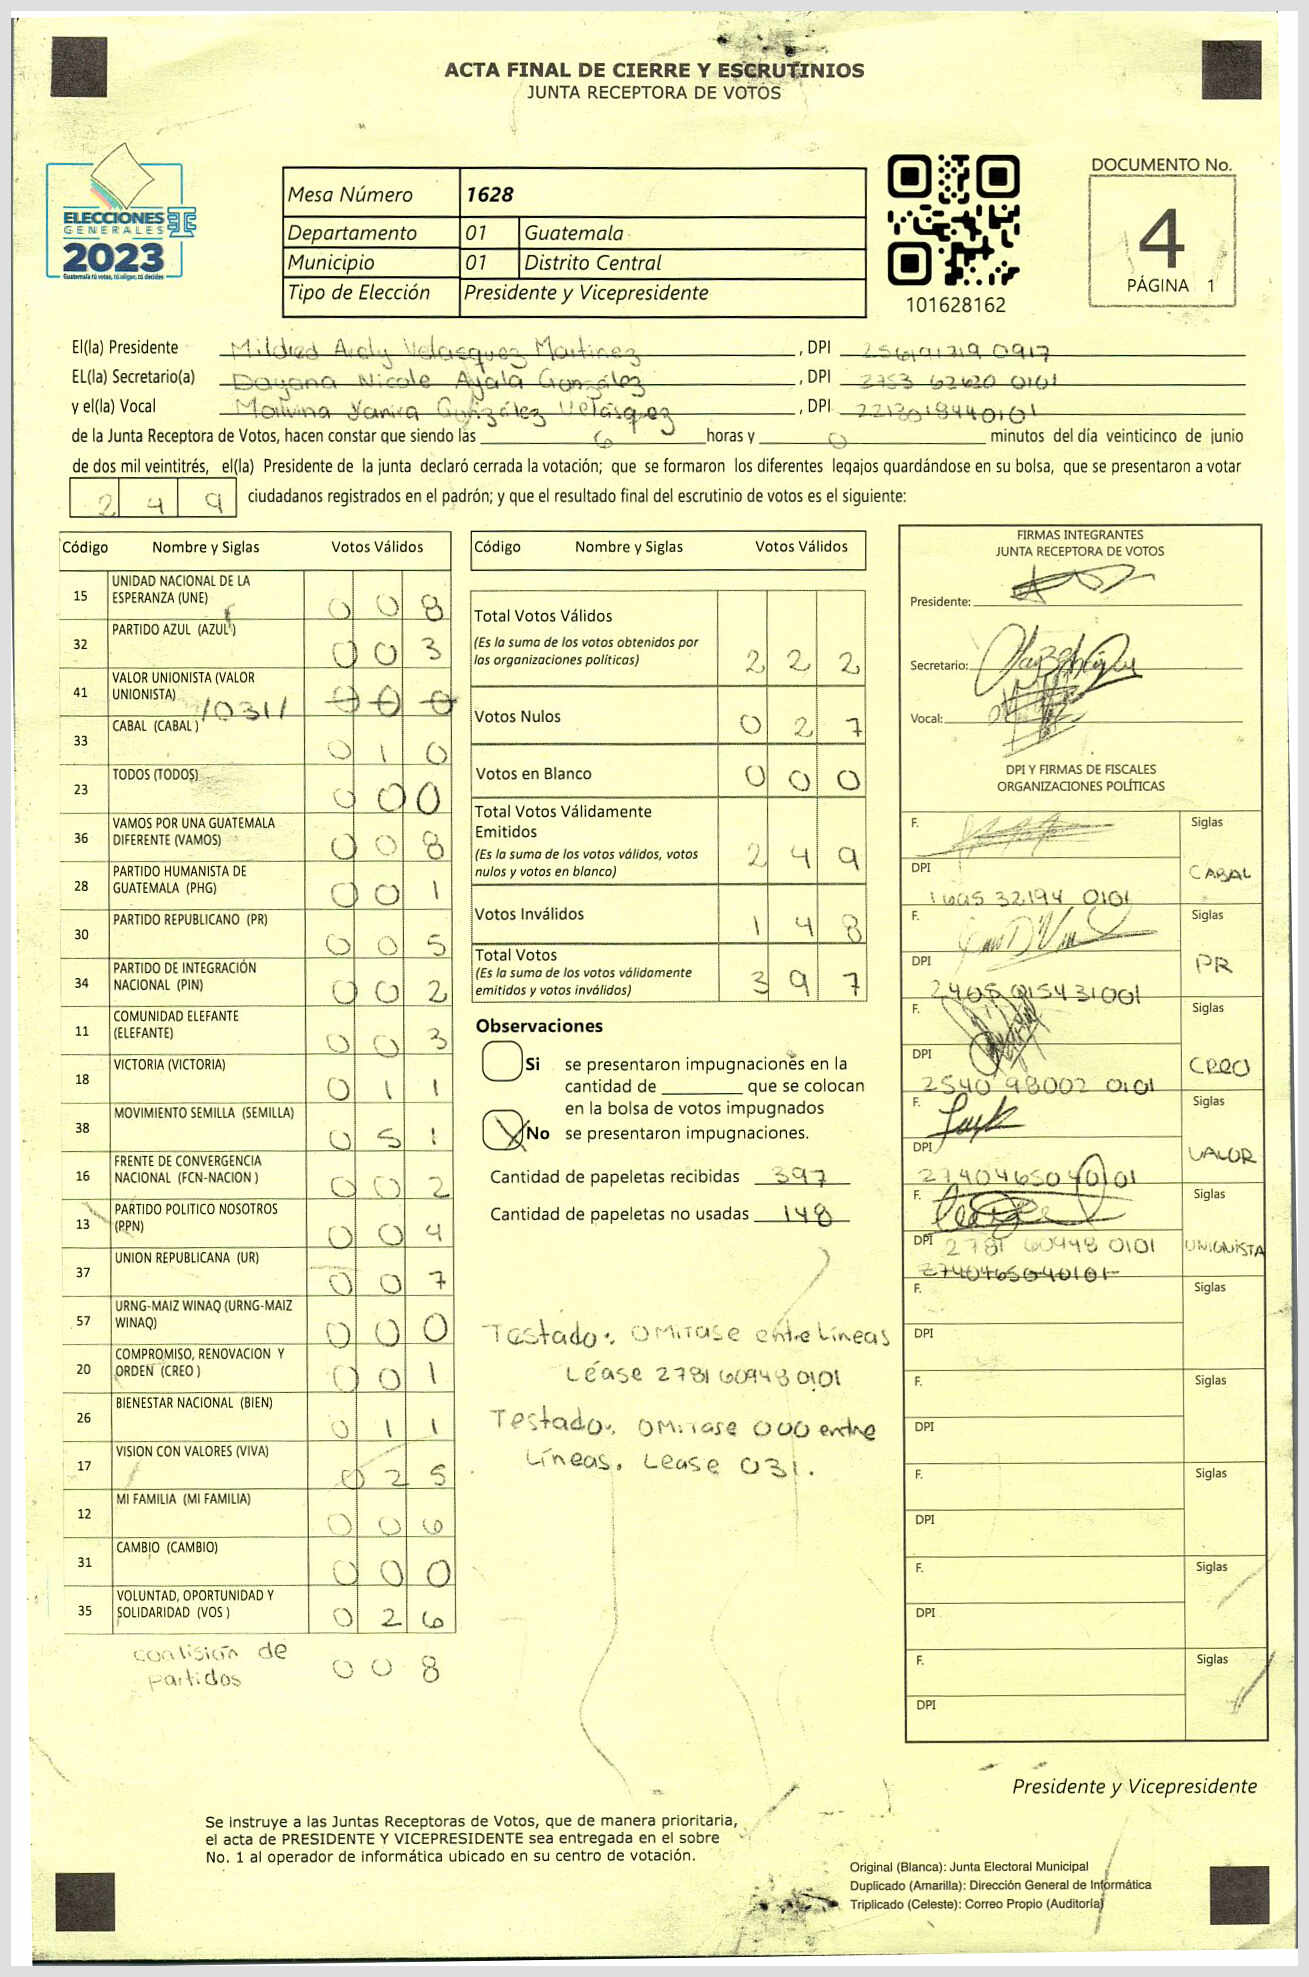 ACTA FINAL DE CIERRE Y ESCRUTINIOS
JUNTA RECEPTORA DE VOTOS
ELECCIONES
GENERALES
2023
Guatemala tú votas, tú eliges, tú decides
Mesa Número 1628
Departamento 01 Guatemala
Municipio 01 Distrito Central
Tipo de Elección Presidente y Vicepresidente
101628162
DOCUMENTO No.
4
PÁGINA 1
El(la) Presidente Mildred Araly Velasquez Martinez, DPI 2561917190917
EL(la) Secretario(a) Dayana Nicole Ayala González, DPI 2753 62620 0101
y el(la) Vocal Yanira González Velásquez, DPI 2213018440101
de la Junta Receptora de Votos, hacen constar que siendo las 6 horas y 0 minutos del día veinticinco de junio
de dos mil veintitrés, el(la) Presidente de la junta declaró cerrada la votación; que se formaron los diferentes legajos guardándose en su bolsa, que se presentaron a votar
249 ciudadanos registrados en el padrón; y que el resultado final del escrutinio de votos es el siguiente:
Código Nombre y Siglas Votos Válidos
15 UNIDAD NACIONAL DE LA
ESPERANZA (UNE) 008
32 PARTIDO AZUL (AZUL) 003
41 VALOR UNIONISTA (VALOR
UNIONISTA) /031/ 000
33 CABAL (CABAL) 010
23 TODOS (TODOS) 000
36 VAMOS POR UNA GUATEMALA
DIFERENTE (VAMOS) 008
28 PARTIDO HUMANISTA DE
GUATEMALA (PHG) 001
30 PARTIDO REPUBLICANO (PR) 005
34 PARTIDO DE INTEGRACIÓN
NACIONAL (PIN) 002
11 COMUNIDAD ELEFANTE
(ELEFANTE) 003
18 VICTORIA (VICTORIA) 011
38 MOVIMIENTO SEMILLA (SEMILLA) 051
16 FRENTE DE CONVERGENCIA
NACIONAL (FCN-NACION ) 002
13 PARTIDO POLITICO NOSOTROS
(PPN) 004
37 UNION REPUBLICANA (UR) 007
57 URNG-MAIZ WINAQ (URNG-MAIZ
WINAQ) 000
20 COMPROMISO, RENOVACION Y
ORDEN (CREO ) 001
26 BIENESTAR NACIONAL (BIEN) 011
17 VISION CON VALORES (VIVA) 025
12 MI FAMILIA (MI FAMILIA) 006
31 CAMBIO (CAMBIO) 000
35 VOLUNTAD, OPORTUNIDAD Y
SOLIDARIDAD (VOS ) 026
coalisión de
partidos 008
Código Nombre y Siglas Votos Válidos
Total Votos Válidos
(Es la suma de los votos obtenidos por
las organizaciones políticas) 222
Votos Nulos 027
Votos en Blanco 000
Total Votos Válidamente
Emitidos
(Es la suma de los votos válidos, votos
nulos y votos en blanco) 249
Votos Inválidos 148
Total Votos
(Es la suma de los votos válidamente
emitidos y votos inválidos) 397
Observaciones
Si se presentaron impugnaciones en la
cantidad de ________ que se colocan
en la bolsa de votos impugnados
X No se presentaron impugnaciones.
Cantidad de papeletas recibidas 397
Cantidad de papeletas no usadas 148
Testado: OMITASE entre Líneas
Léase 2781609480101
Testado: OMITASE 000 entre
Líneas. Lease 031.
FIRMAS INTEGRANTES
JUNTA RECEPTORA DE VOTOS
Presidente:
Secretario:
Vocal:
DPI Y FIRMAS DE FISCALES
ORGANIZACIONES POLÍTICAS
F. Siglas
DPI CABAL
1695 32194 0101
F. Siglas
DPI PR
2405 015431001
F. Siglas
DPI CREO
2540 98002 0101
F. Siglas
DPI VALOR
2740465040101
F. Siglas
DPI 2781 60948 0101 UNIONISTA
2740465040101
F. Siglas
DPI
F. Siglas
DPI
F. Siglas
DPI
F. Siglas
DPI
F. Siglas
DPI
Presidente y Vicepresidente
Se instruye a las Juntas Receptoras de Votos, que de manera prioritaria,
el acta de PRESIDENTE Y VICEPRESIDENTE sea entregada en el sobre
No. 1 al operador de informática ubicado en su centro de votación.
Original (Blanca): Junta Electoral Municipal
Duplicado (Amarilla): Dirección General de Informática
Triplicado (Celeste): Correo Propio (Auditoría)